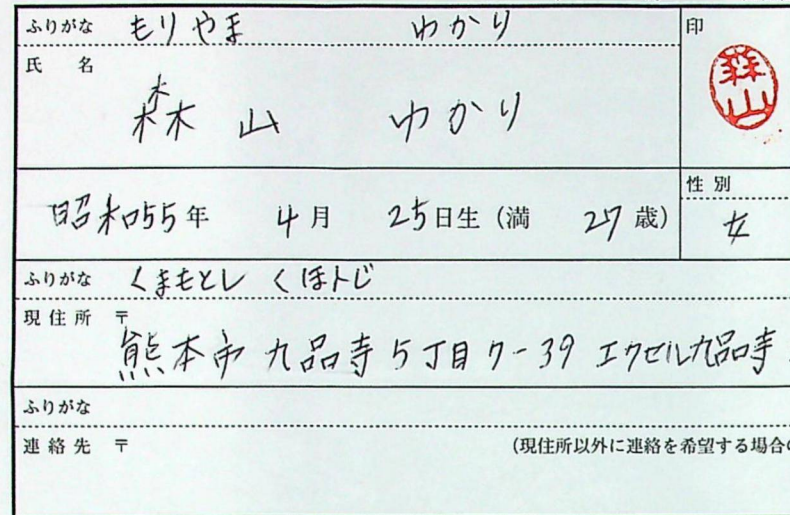 ふりがな もりやま ゆかり 印
氏 名
森山 ゆかり 森山
昭和55年 4月 25日生 (満 27歳) 性別 女
ふりがな くまもとし くほんじ
現住所 〒
熊本市 九品寺 5丁目 7-39 エクセル九品寺
ふりがな
連絡先 〒 (現住所以外に連絡を希望する場合の